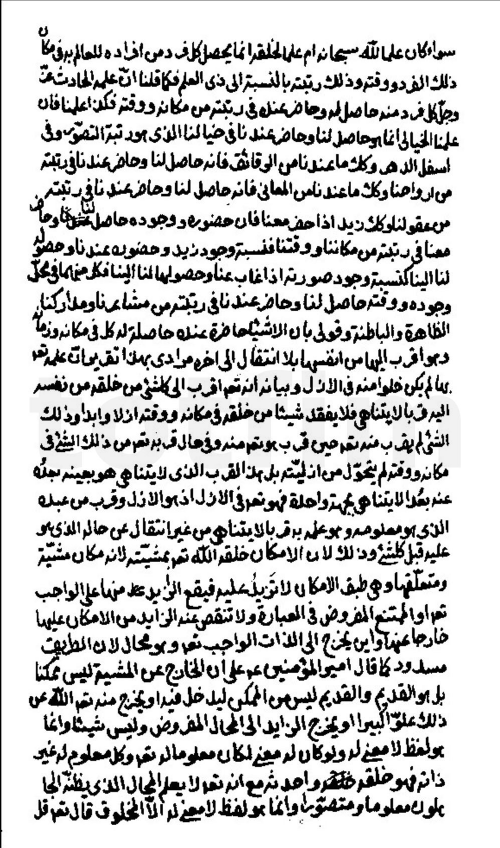 سواء كان علما لله سبحانه ام علما لخلقه انما يحصل كل فرد من افراده للعالم به في مكان
ذلك الفرد ووقته وذلك رتبته بالنسبة الى ذى العلم فكما قلنا ان علمه الحادث عز
وجل كل فرد منه حاصل له وحاضر عنده فى رتبته من مكانه ووقته فكذا علمنا فان
علمنا الخيالى انما هو حاصل لنا وحاضر عندنا فى خيالنا الذى هو رتبة التصور وفى
اسفل الدهر وكك ما عندنا من الرقائق فانه حاصل لنا وحاضر عندنا فى رتبته
من ارواحنا وكك ما عندنا من المعانى فانه حاصل لنا وحاضر عندنا فى رتبته
من عقولنا وكك زيد اذا حضر معنا فان حضوره ووجوده حاصل لنا وحاضر
معنا فى رتبته من مكاننا ووقتنا فنسبة وجود زيد وحضوره عندنا وحصوله
لنا الينا كنسبة وجود صورته اذا غاب عنا وحصولها لنا الينا فكل منهما فى محل
وجوده ووقته حاصل لنا وحاضر عندنا فى رتبته من مشاعرنا ومداركنا
الظاهرة والباطنة وقولى بان الاشياء حاضرة عنده حاصلة له كل فى مكانه وزمانه
وهو اقرب اليها من انفسها بلا انتقال الى اخره مرادى بهذا تقريبات علمه تعه
بها لم يكن خلوا منه فى الازل وبيانه انه تعه اقرب الى كل شئ من خلقه من نفسه
اليه قربا لا يتناهى فلا يفقد شيئا من خلقه فى مكانه ووقته ازلا وابدا وذلك
الشئ لم يقرب منه تعه حين قرب هو تعه منه وفى حال قربه تعه من ذلك الشئ فى
مكانه ووقته لم يتحول من ازليته بل هذا القرب الذى لا يتناهى هو بعينه بعده
عنه بعدا لا يتناهى بجهة واحدة فهو تعه فى الازل اذ هو الازل وقرب من عبده
الذى هو معلومه وهو علمه به قربا لا يتناهى من غير انتقال عن حاله الذى هو
عليه قبل كل شئ وذلك لان الامكان خلقه الله تعه بمشيته لانه مكان مشيته
ومتعلقها وهى طبق الامكان لا تزيد عليه فيقع الزايد منها على الواجب
تعه او الممتنع المفروض فى العبارة ولا تنقص عنه الزايد من الامكان عليها
خارجا عنها واين يخرج الى الذات الواجب تعه وهو محال لان الطريق
مسدود كما قال امير المؤمنين عه على ان الخارج عن المشية ليس ممكنا
بل هو القديم والقديم ليس من الممكن ليدخل فيه او يخرج منه تعه الله عن
ذلك علوا كبيرا او يخرج الزايد الى المحال المفروض وليس شيئا وانما
هو لفظ لا معنى له ولو كان له معنى لكان معلوما له تعه وكل معلوم له غير
ذاته فهو خلقه واحد ثم مع انه تعه لا يعلم المحال الذى يظنه الجا
هلون معلوما ومتصورا وانما هو لفظ لا معنى له الا المخلوق قال تعه قل